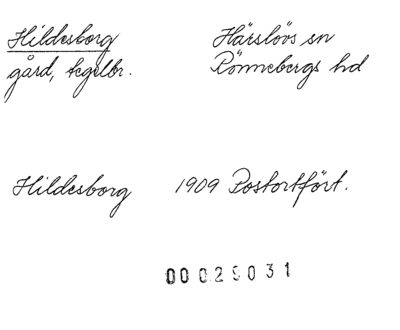 Hildesborg
gård, tegelbr.
Härslövs sn
Rönnebergs hd
Hildesborg 1909 Postortfört.
00029031